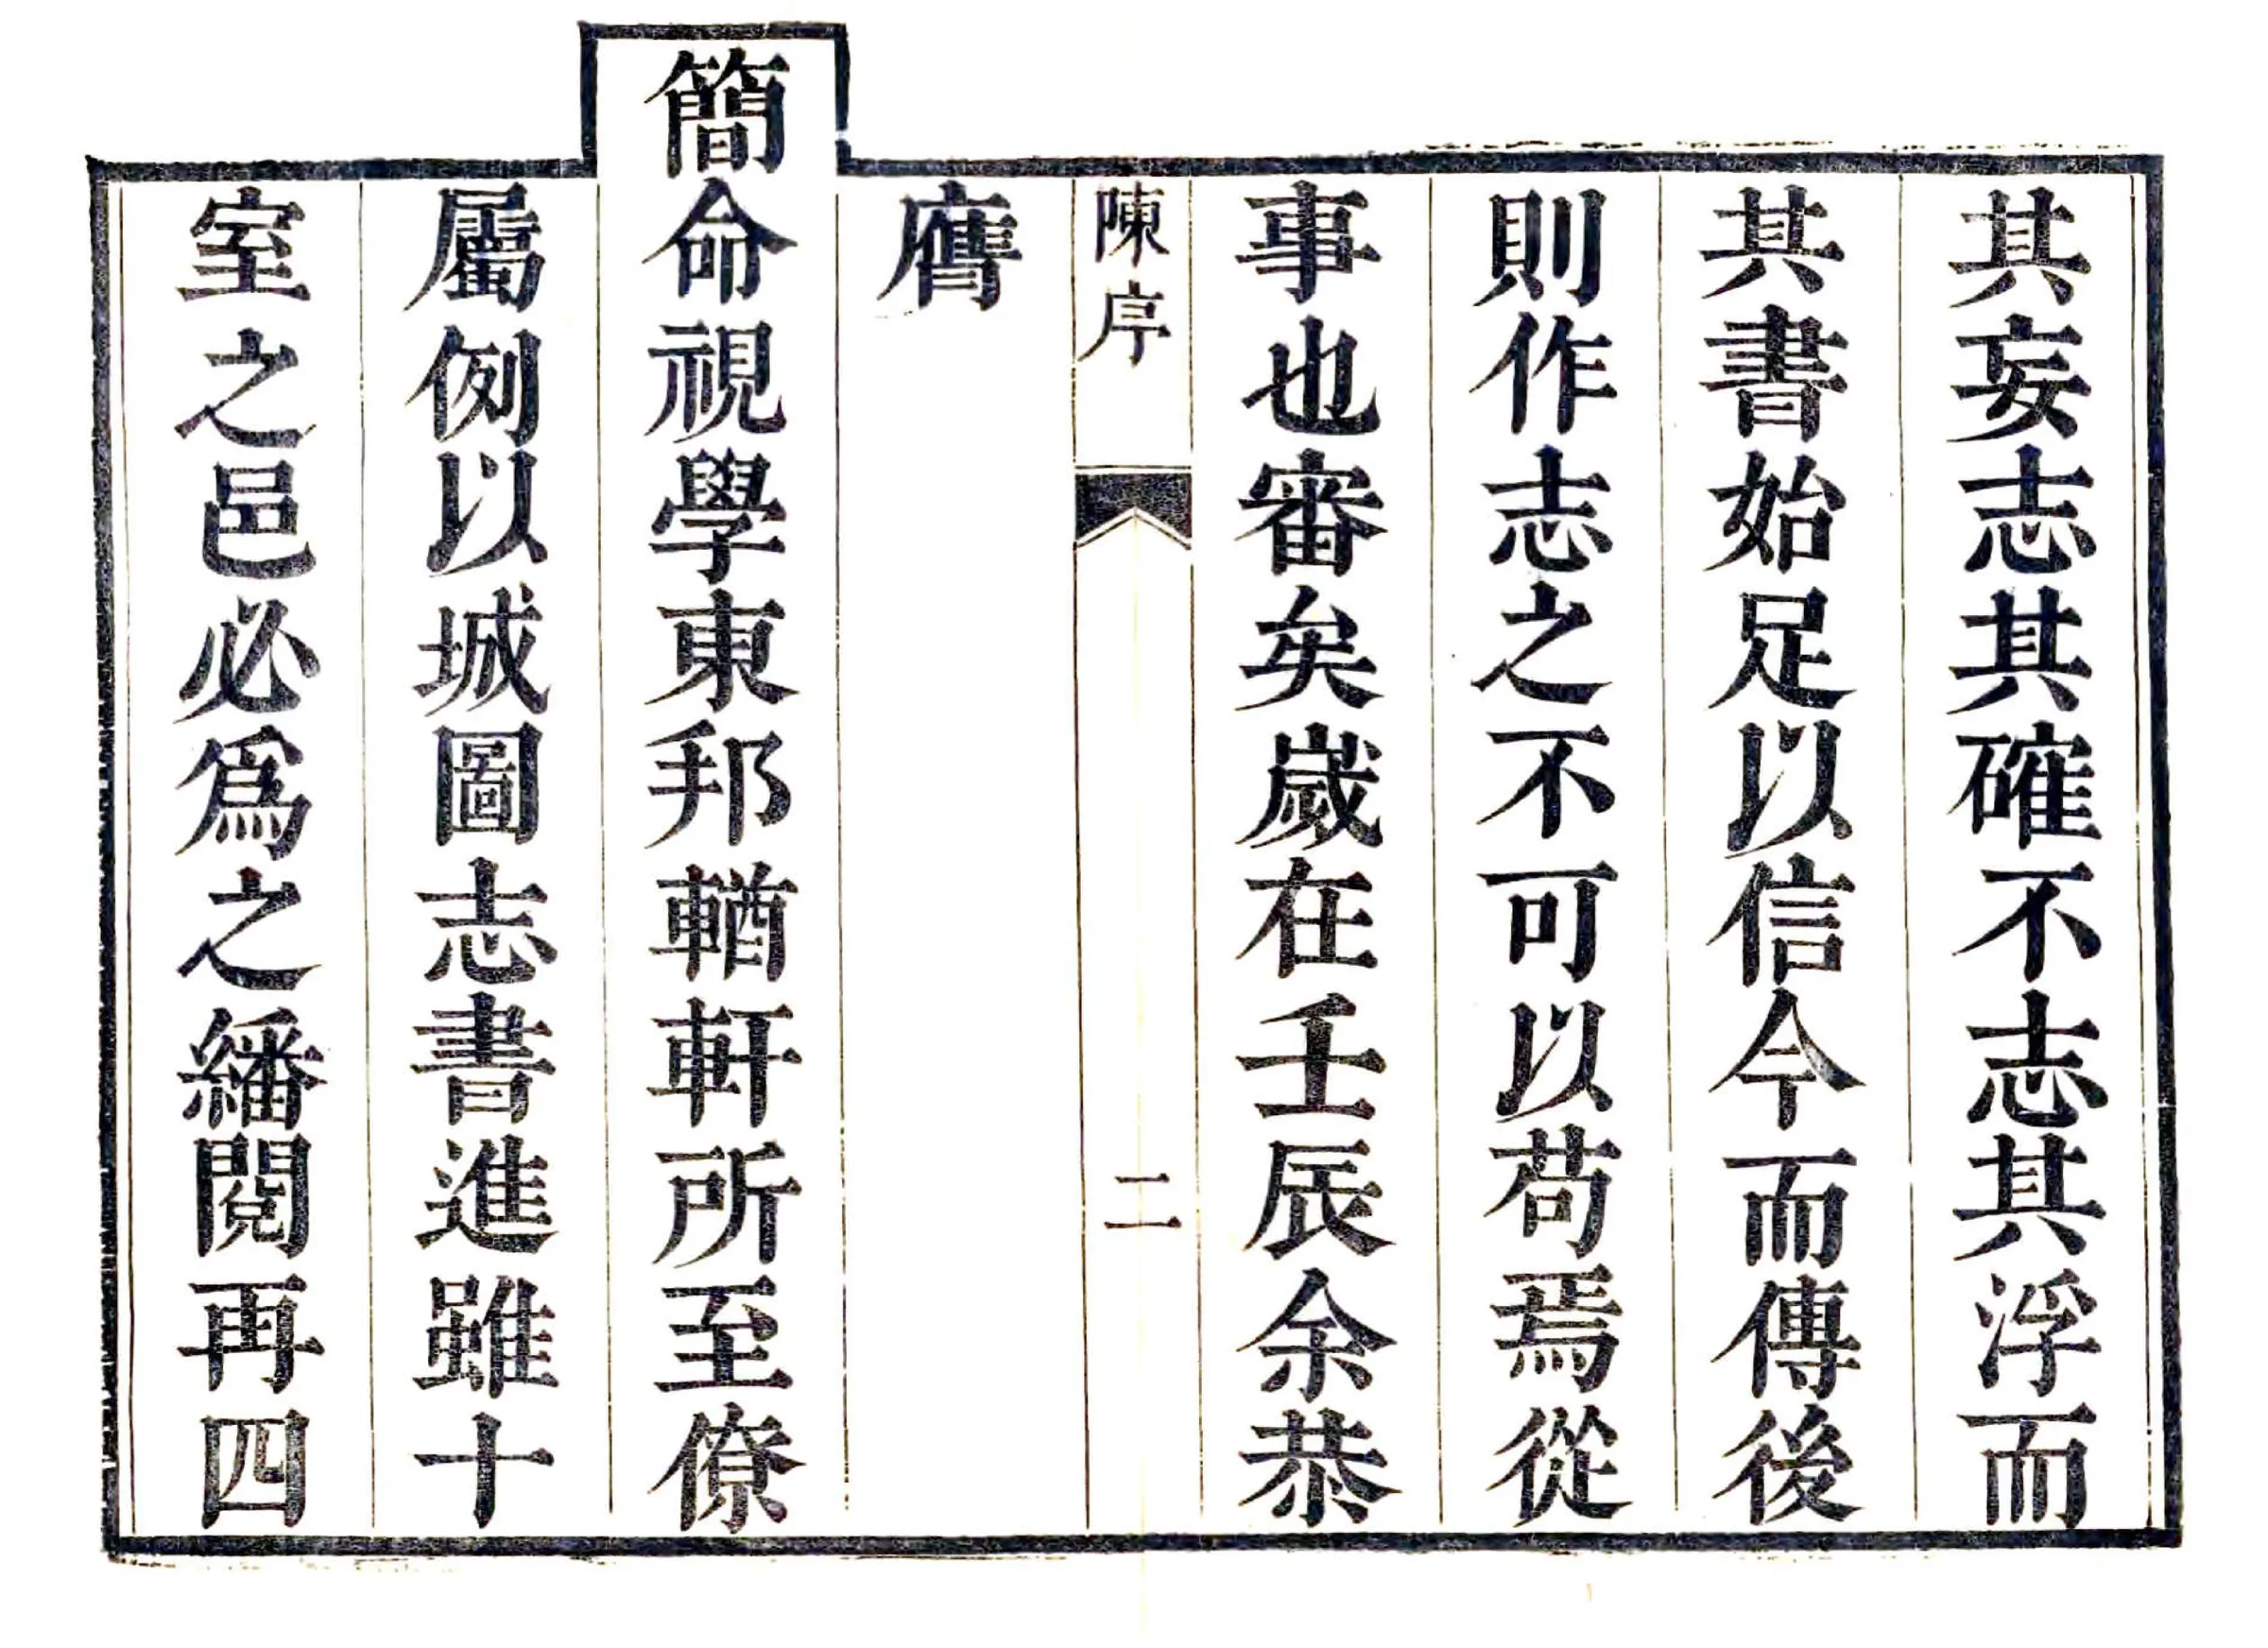 其妄志其確不志其浮而
其書始足以信今而傳後
則作志之不可以苟焉從
事也審矣歲在壬辰余恭
陳序
二
膺
簡命視學東邦輶軒所至僚
屬例以城圖志書進雖十
室之邑必爲之繙閱再四